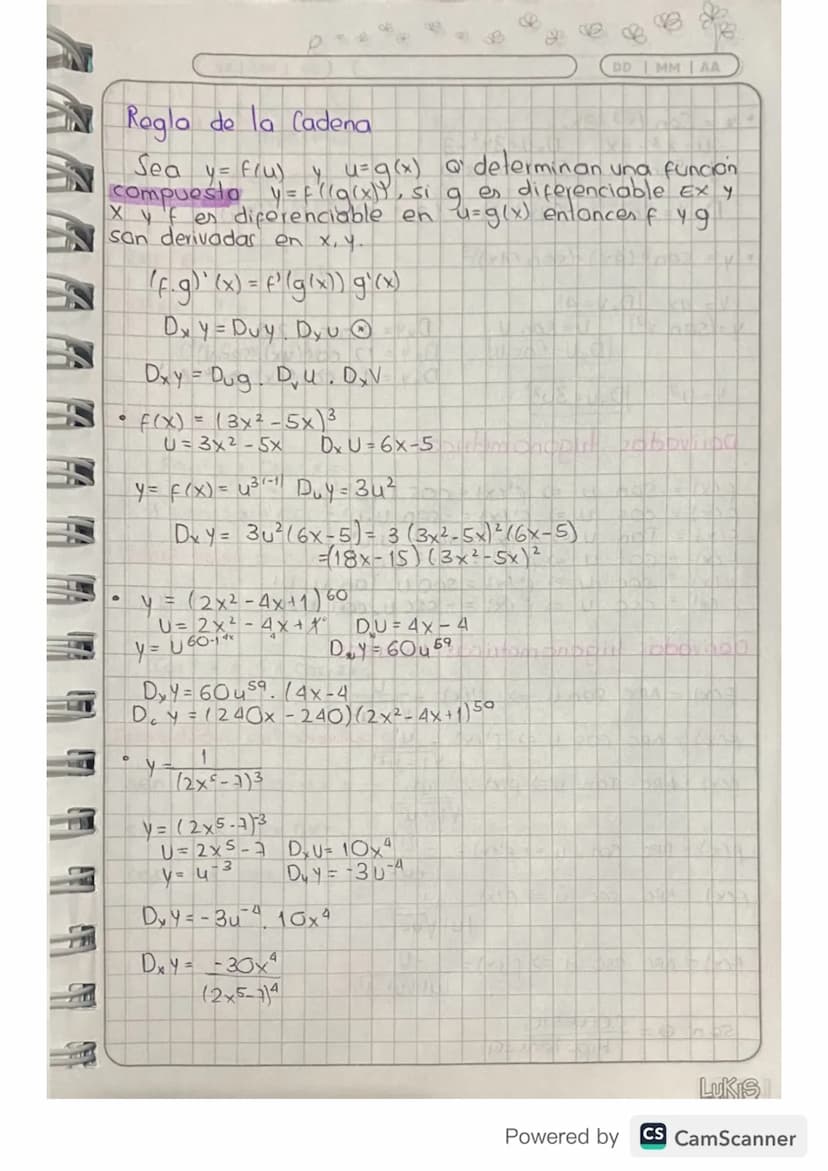 DD | MM | AA
Regla de la Cadena
Sea y = f(u) y u = g(x) determinan una función
compuesta y = f(g(x)), si g es diferenciable EX y
X y f es diferenciable en u = g(x) entonces f y g
son derivadas en x, y.
(f.g)'(x) = f'(g(x)) g'(x)
Dx y = Du y . Dx u
Dx y = Du g . Dv u . Dx V
• f(x) = (3x² - 5x)³
U = 3x² - 5x Dx U = 6x - 5
y = f(x) = u³⁽⁻¹⁾ Du y = 3u²
Dx y = 3u² (6x - 5) = 3 (3x² - 5x)² (6x - 5)
= (18x - 15) (3x² - 5x)²
• y = (2x² - 4x + 1)⁶⁰
U = 2x² - 4x + 1 Dx U = 4x - 4
y = U⁶⁰⁻¹ Du y = 60u⁵⁹
Dx y = 60u⁵⁹ . (4x - 4
Dc y = (240x - 240) (2x² - 4x + 1)⁵⁹
• y = 1
(2x⁵ - 7)³
y = (2x⁵ - 7)⁻³
U = 2x⁵ - 7 Dx U = 10x⁴
y = u⁻³ Du y = -3u⁻⁴
Dx y = -3u⁻⁴ . 10x⁴
Dx y = -30x⁴
(2x⁵ - 7)⁴
LUKIS
Powered by CS CamScanner